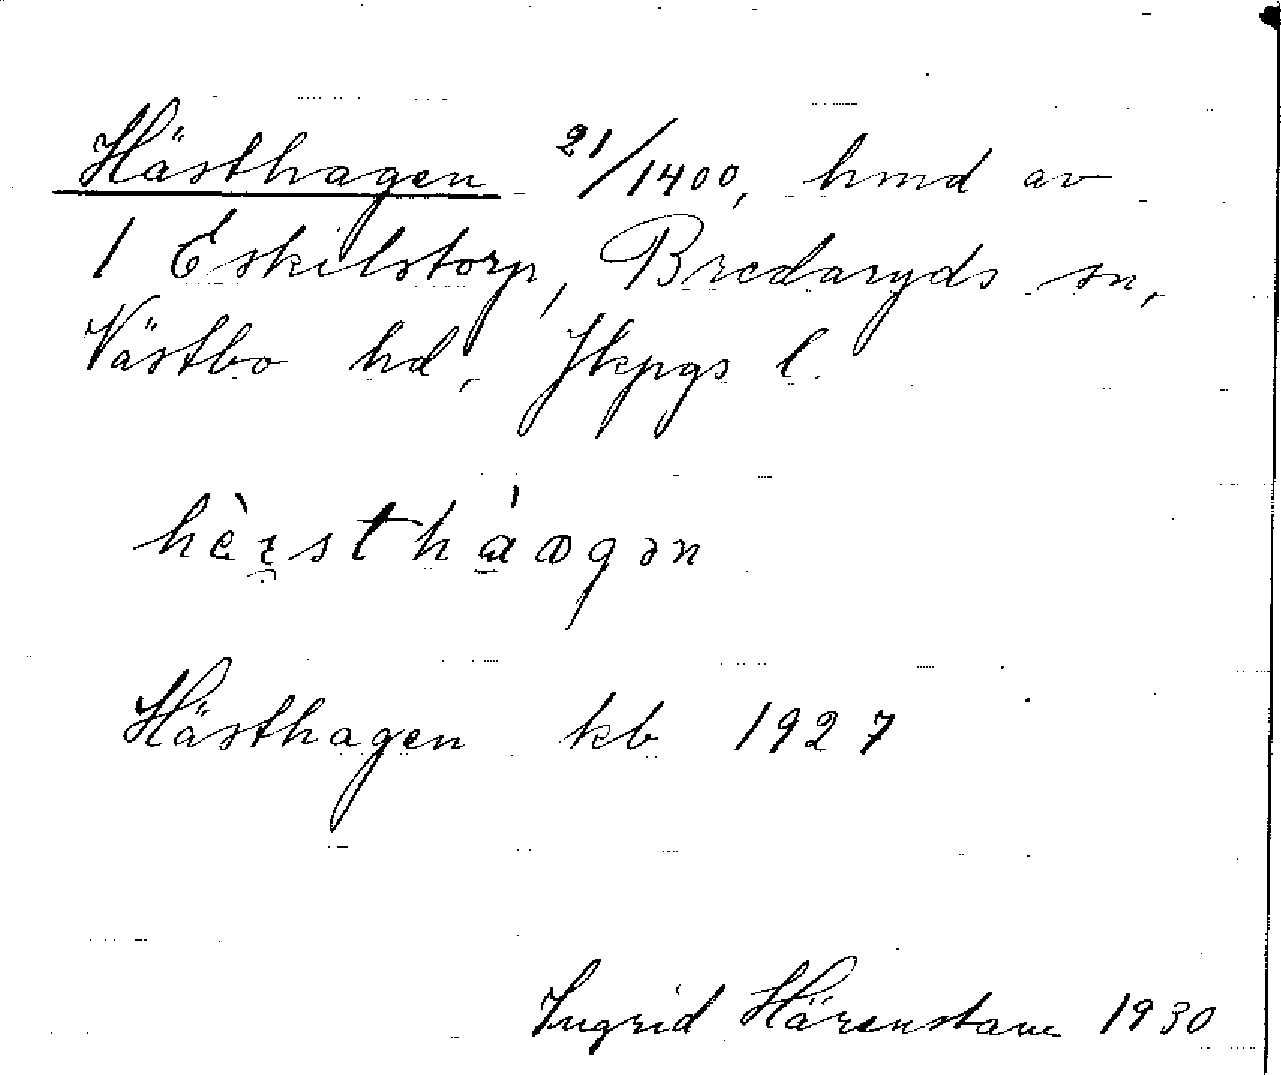 Hästhagen 21/1400, hmd av
1 Eskilstorp, Bredaryds sn,
Västbo hd, Jkpgs l.
hö̀stháagən
Hästhagen kb 1927
Ingrid Härenstam 1930